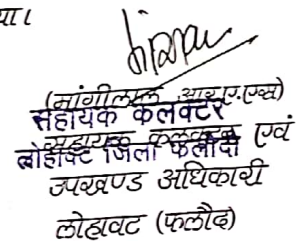 या।
(मांगीलाल आर.ए.एस)
सहायक कलक्टर
सहायक कलक्टर एवं
लोहावट जिला फलौदी
उपखण्ड अधिकारी
लोहावट (फलौदी)